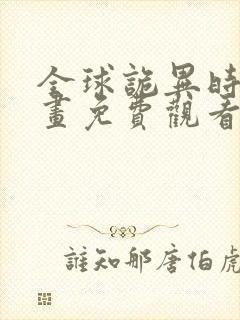 全球詭異時
畫免費觀看
誰知那唐伯虎